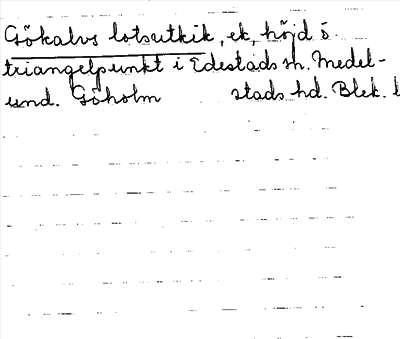 Gökalvs lotsutkik, ek, höjd o.
triangelpunkt i Edestads sn. Medel-
und. Göholm stads hd. Blek. l